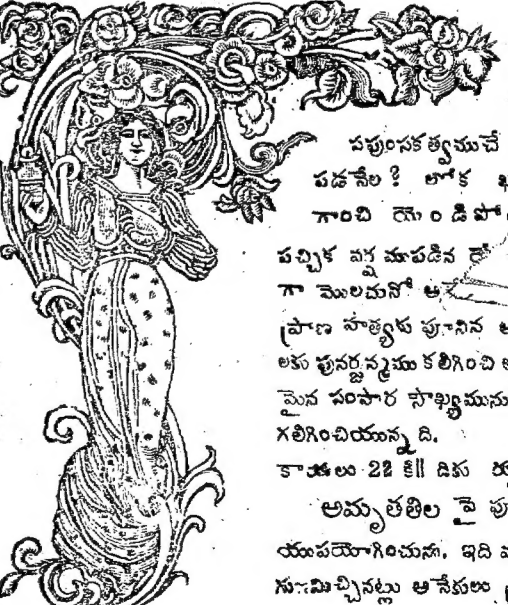 నపుంసకత్వముచే
పడనేల? లోక
గాంచి యెండిపో
పచ్చిక వర్షముపడిన
గా మొలచునో ఆ
ప్రాణ హత్యకు పూనిన
లకు పునర్జన్మము కలిగించి
మైన సంసార సౌఖ్యమును
గలిగించియున్నది.
22 కి॥
అమృతతిల పై పూ
యుపయోగించును. ఇది
మిచ్చినట్లు అనేకులు